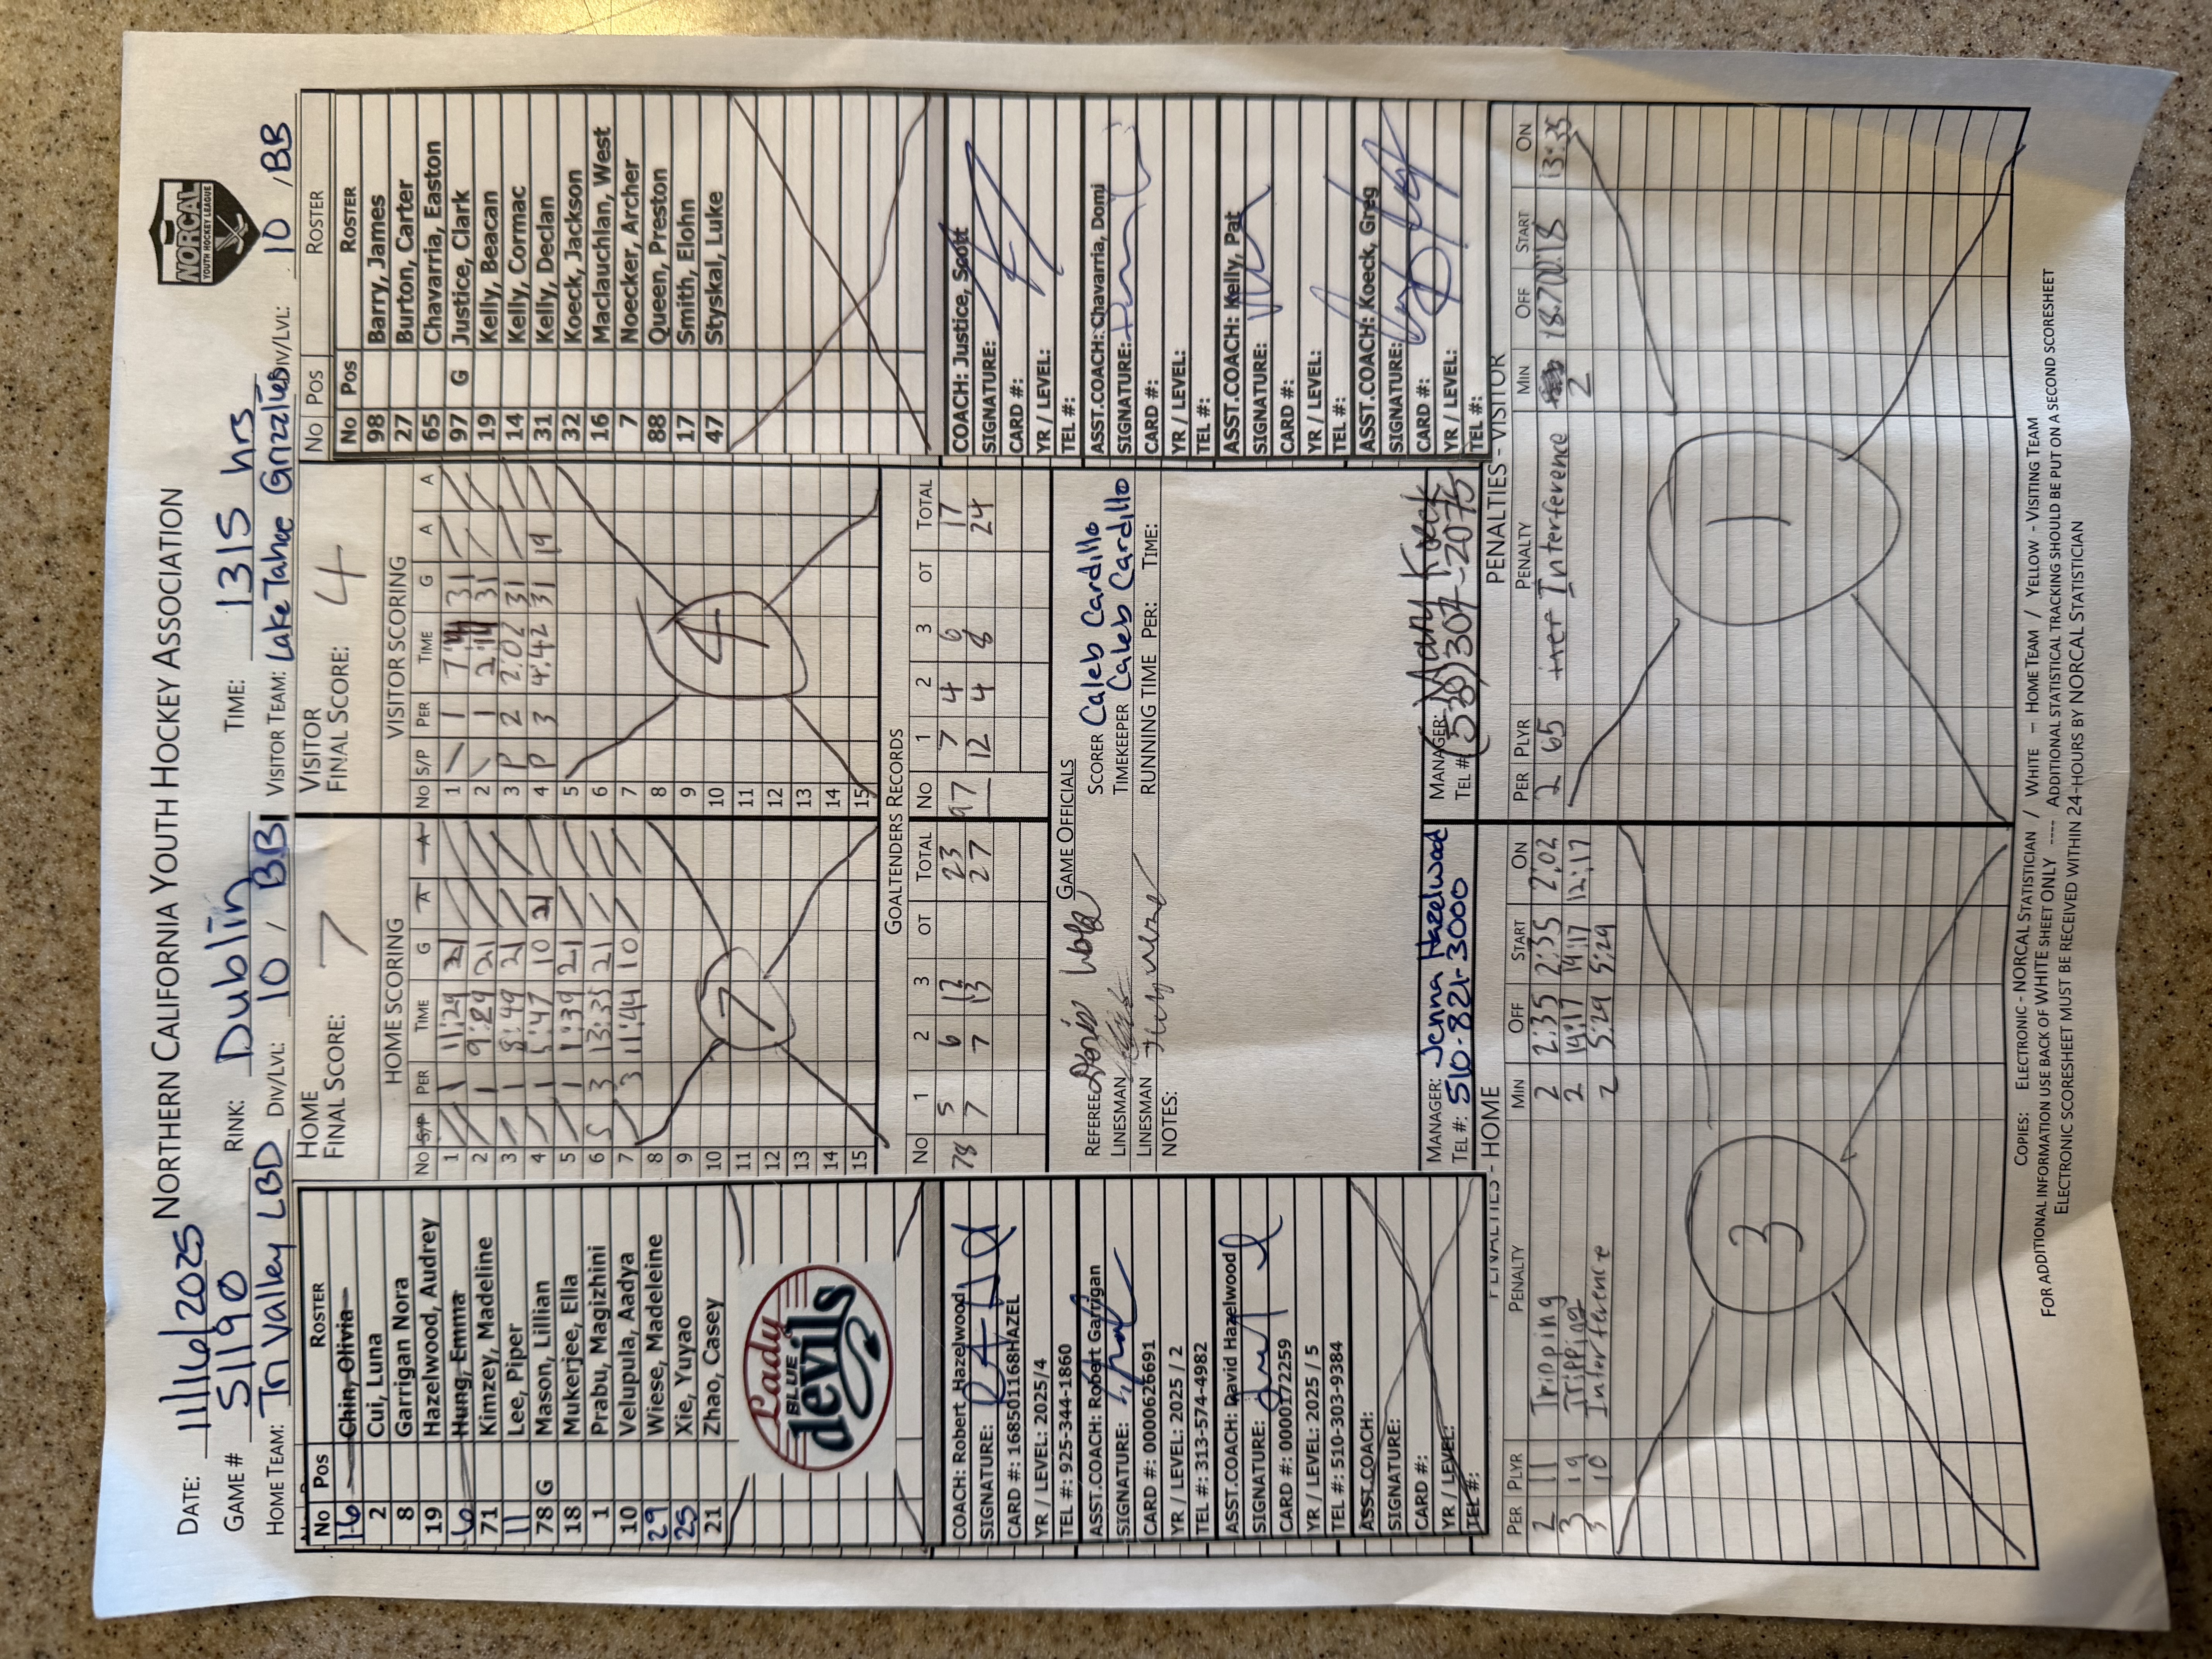 NORTHERN CALIFORNIA YOUTH HOCKEY ASSOCIATION
NORCAL
YOUTH HOCKEY LEAGUE
DATE: 11/16/2025
GAME # 51190 RINK: Dublin TIME: 1315 hrs
HOME TEAM: Tri Valley LBD DIV/LVL: 10 / BB VISITOR TEAM: Lake Tahoe Grizzlies DIV/LVL: 10 / BB
No Pos ROSTER
16 Chin, Olivia
2 Cui, Luna
8 Garrigan Nora
19 Hazelwood, Audrey
6 Hung, Emma
71 Kimzey, Madeline
11 Lee, Piper
78 G Mason, Lillian
18 Mukerjee, Ella
1 Prabu, Magizhini
10 Velupula, Aadya
29 Wiese, Madeleine
25 Xie, Yuyao
21 Zhao, Casey
Lady
BLUE
devils
COACH: Robert Hazelwood
SIGNATURE:
CARD #: 168501168HAZEL
YR / LEVEL: 2025/4
TEL #: 925-344-1860
ASST.COACH: Robert Garrigan
SIGNATURE:
CARD #: 0000626691
YR / LEVEL: 2025 / 2
TEL #: 313-574-4982
ASST.COACH: David Hazelwood
SIGNATURE:
CARD #: 0000172259
YR / LEVEL: 2025 / 5
TEL #: 510-303-9384
ASST.COACH:
SIGNATURE:
CARD #:
YR / LEVEL:
TEL #:
HOME
FINAL SCORE: 7
HOME SCORING
NO S/P PER TIME G A A
1 1 11:29 21
2 1 9:29 21
3 1 8:49 21
4 1 5:47 10 21
5 1 1:39 21
6 S 3 13:35 21
7 3 11:44 10
8
9
10
11
12
13
14
15
7
VISITOR
FINAL SCORE: 4
VISITOR SCORING
NO S/P PER TIME G A A
1 1 31
2 1 2:14 31
3 P 2 2:02 31
4 P 3 4:42 31 19
5
6
7
8
9
10
11
12
13
14
15
4
GOALTENDERS RECORDS
NO 1 2 3 OT TOTAL NO 1 2 3 OT TOTAL
78 5 6 12 23 97 7 4 6 17
7 7 13 27 12 4 8 24
GAME OFFICIALS
REFEREE SCORER Caleb Cardillo
LINESMAN TIMEKEEPER Caleb Cardillo
LINESMAN RUNNING TIME PER: TIME:
NOTES:
MANAGER: Jenna Hazelwood MANAGER: Mary Koeck
TEL #: 510-821-3000 TEL # (530) 307-2075
No Pos ROSTER
No Pos ROSTER
98 Barry, James
27 Burton, Carter
65 Chavarria, Easton
97 G Justice, Clark
19 Kelly, Beacan
14 Kelly, Cormac
31 Kelly, Declan
32 Koeck, Jackson
16 Maclauchlan, West
7 Noecker, Archer
88 Queen, Preston
17 Smith, Elohn
47 Styskal, Luke
COACH: Justice, Scott
SIGNATURE:
CARD #:
YR / LEVEL:
TEL #:
ASST.COACH: Chavarria, Domi
SIGNATURE:
CARD #:
YR / LEVEL:
TEL #:
ASST.COACH: Kelly, Pat
SIGNATURE:
CARD #:
YR / LEVEL:
TEL #:
ASST.COACH: Koeck, Greg
SIGNATURE:
CARD #:
YR / LEVEL:
TEL #:
PENALTIES - HOME
PER PLYR PENALTY MIN OFF START ON
2 11 Tripping 2 2:35 2:35 2:02
3 19 Tripping 2 14:17 14:17 12:17
3 10 Interference 2 5:29 5:29
3
PENALTIES - VISITOR
PER PLYR PENALTY MIN OFF START ON
2 65 Interference 2 13:35
1
COPIES: ELECTRONIC - NORCAL STATISTICIAN / WHITE – HOME TEAM / YELLOW - VISITING TEAM
FOR ADDITIONAL INFORMATION USE BACK OF WHITE SHEET ONLY ---- ADDITIONAL STATISTICAL TRACKING SHOULD BE PUT ON A SECOND SCORESHEET
ELECTRONIC SCORESHEET MUST BE RECEIVED WITHIN 24-HOURS BY NORCAL STATISTICIAN